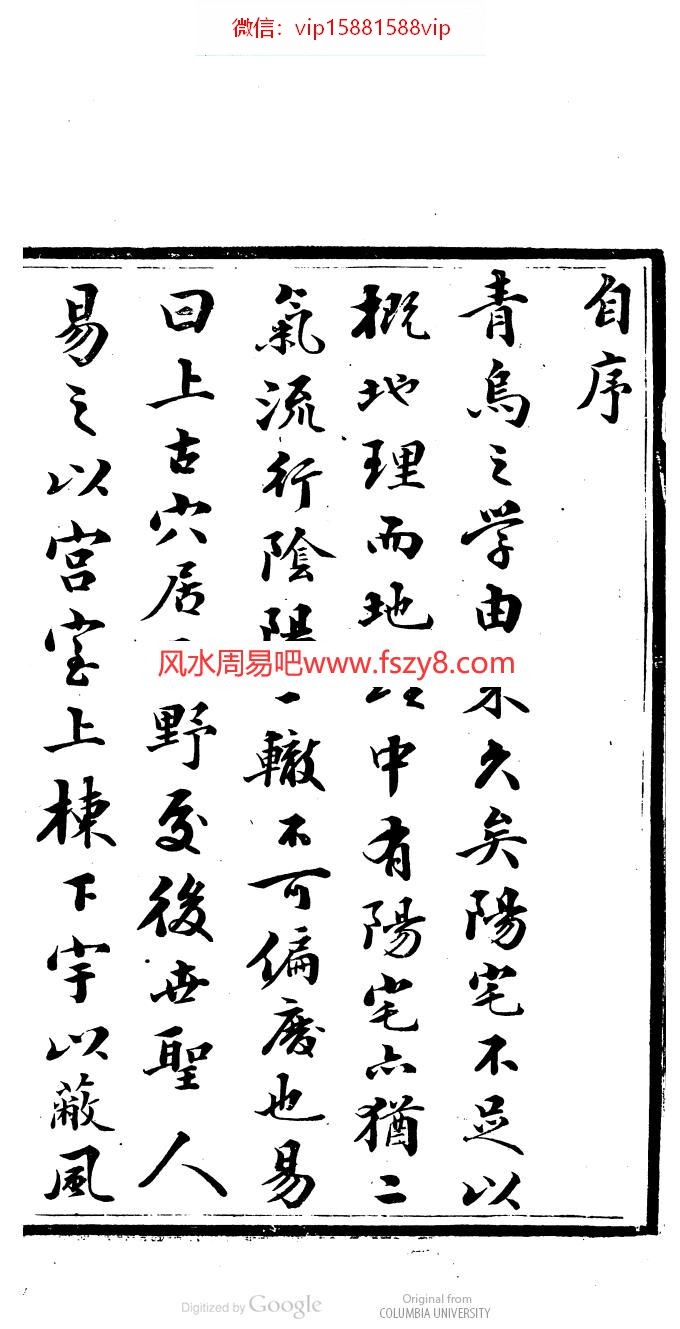 微信：vip15881588vip
自序
青烏之学由久矣陽宅不足以
概地理而地中有陽宅亦猶二
氣流行陰陽一轍不可偏廢也易
曰上古穴居野處後世聖人
易之以宮室上棟下宇以蔽風
风水周易吧www.fszy8.com
Digitized by Google
Original from
COLUMBIA UNIVERSITY